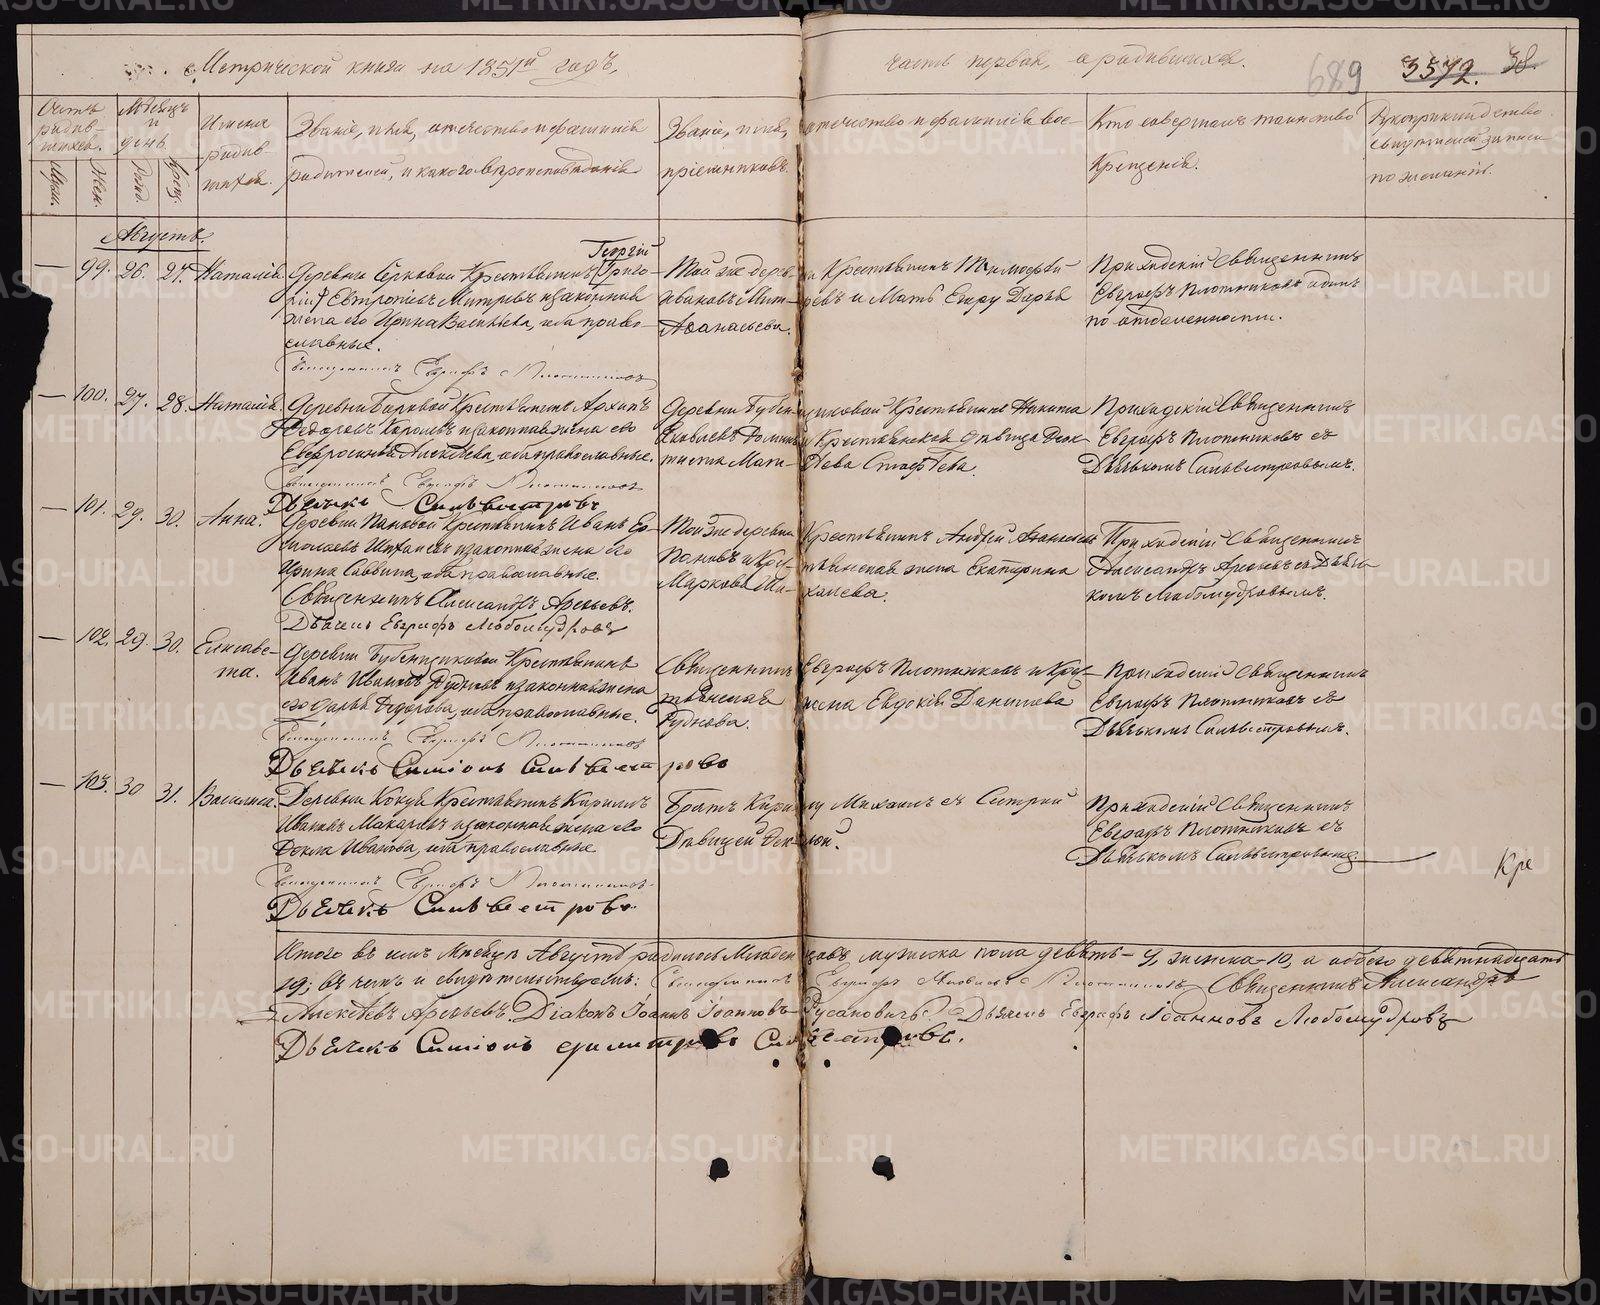 Метрической книги на 1851й годъ,
часть первая, о родившихся.
689
3572.
38.
Счетъ родив-шихся.
Муж.
Жен.
Мѣсяцъ и день.
Рожд.
Крещ.
Имена родив-шихся.
Званіе, имя, отечество и фамилія
родителей, и какого вѣроисповѣданія
Званіе, имя, отечество и фамилія вос-
пріемниковъ.
Кто совершалъ таинство
Крещенія.
Рукоприкладство
свидѣтелей записи
по желанію.
Августъ.
— 99. 26. 27. Наталія.
Георгій
Деревни Крестьянинъ Григо-
рій Евтропіевъ и законная
жена его Ирина Васильева, оба право-
славные.
Священникъ Евграфъ Плотниковъ
Той же деревни Крестьянинъ Тимофей
Ивановъ и Мать Егору Дарья
Аѳанасьева.
Приходскій Священникъ
Евграфъ Плотниковъ одинъ
по отдаленности.
— 100. 27. 28. Наталія.
Деревни Боровой Крестьянинъ Архипъ
Федоровъ и законная жена его
Евфросинья Алексѣева, оба православные.
Священникъ Евграфъ Плотниковъ
Дьячекъ Сильвестровъ
Деревни Бубенщиковой Крестьянинъ Никита
Яковлевъ и Крестьянская дѣвица
Приходскій Священникъ
Евграфъ Плотниковъ съ
Дьячькомъ Сильвестровымъ.
— 101. 29. 30. Анна.
Деревни Пановой Крестьянинъ Иванъ
и законная жена его
Ирина Саввина, оба православные.
Священникъ Александръ Арефьевъ.
Дьячекъ Евграфъ Любомудровъ
Той же деревни Крестьянинъ Андрей
Пановъ и Кре-стьянская жена Екатерина
Маркова Ми-хаилева.
Приходскій Священникъ
Александръ Арефьевъ съ Дьяч-
комъ Любомудровымъ.
— 102. 29. 30. Елисаве-
та.
Деревни Бубенщиковой Крестьянинъ
Иванъ Ивановъ Рудновъ и законная жена
его Дарья Федорова, оба православные.
Священникъ Евграфъ Плотниковъ
Дьячекъ Симіонъ Сильвестровъ
Священникъ Евграфъ Плотниковъ и Кре-
стьянская жена Евдокія Данилева
Руднова.
Приходскій Священникъ
Евграфъ Плотниковъ съ
Дьячькомъ Сильвестровымъ.
— 103. 30 31. Василиса.
Деревни Кокуй Крестьянинъ Кирилъ
Ивановъ Макаровъ и законная жена его
Ѳекла Иванова, оба православные
Священникъ Евграфъ Плотниковъ
Дьячекъ Сильвестровъ.
Братъ Кирилу Михаилъ съ Сестрой
Дѣвицей Ѳеклой.
Приходскій Священникъ
Евграфъ Плотниковъ съ
Дьячькомъ Сильвестровымъ.
Кре
Итого въ семъ Мѣсяцѣ Августѣ родилось Младенцовъ мужеска пола девять – 9, женска – 10, а обоего девятнадцать
19; въ чемъ и свидѣтельствуемъ: Священникъ Евграфъ Яковлевъ Плотниковъ Священникъ Александръ
Алексѣевъ Арефьевъ. Діаконъ Іоаннъ Іоанновъ Русановичъ. Дьячекъ Евграфъ Іоанновъ Любомудровъ
Дьячекъ Симіонъ Димитровъ Сильвестровъ.
METRIKI.GASO-URAL.RU